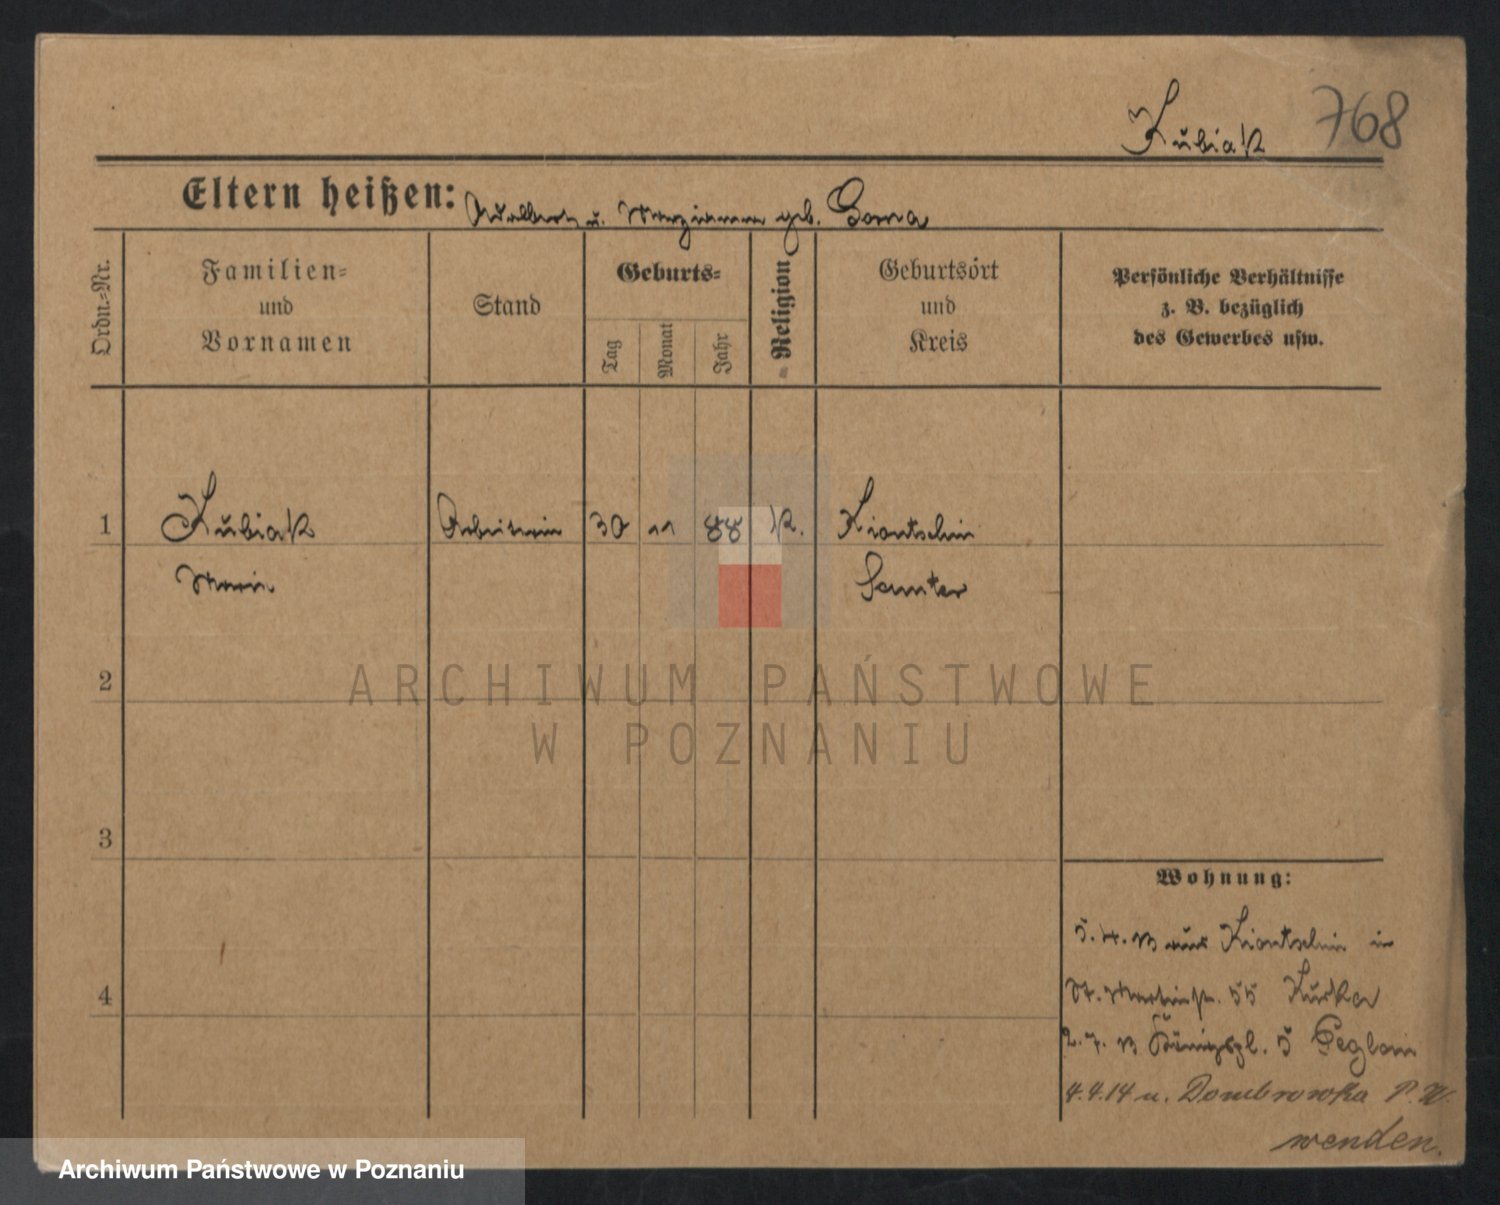 Kubiak 768
Eltern heißen: Adalbert u. Marianna geb. Gorna
Ordn.=Nr.
Familien= und Vornamen
Stand
Geburts=
Tag
Monat
Jahr
Religion
Geburtsort und Kreis
Persönliche Verhältnisse
z. B. bezüglich
des Gewerbes usw.
1 Kubiak Arbeiterin 30 11 88 k. Kiontschin
Marie Samter
2
3
4
Wohnung:
5.4.13 aus Kiontschin in
St. Martinstr. 55 Kurka
2.7.13 Königspl. 5
4.4.14 n. Dombrowka P.W.
wenden.
ARCHIWUM PAŃSTWOWE
W POZNANIU
Archiwum Państwowe w Poznaniu